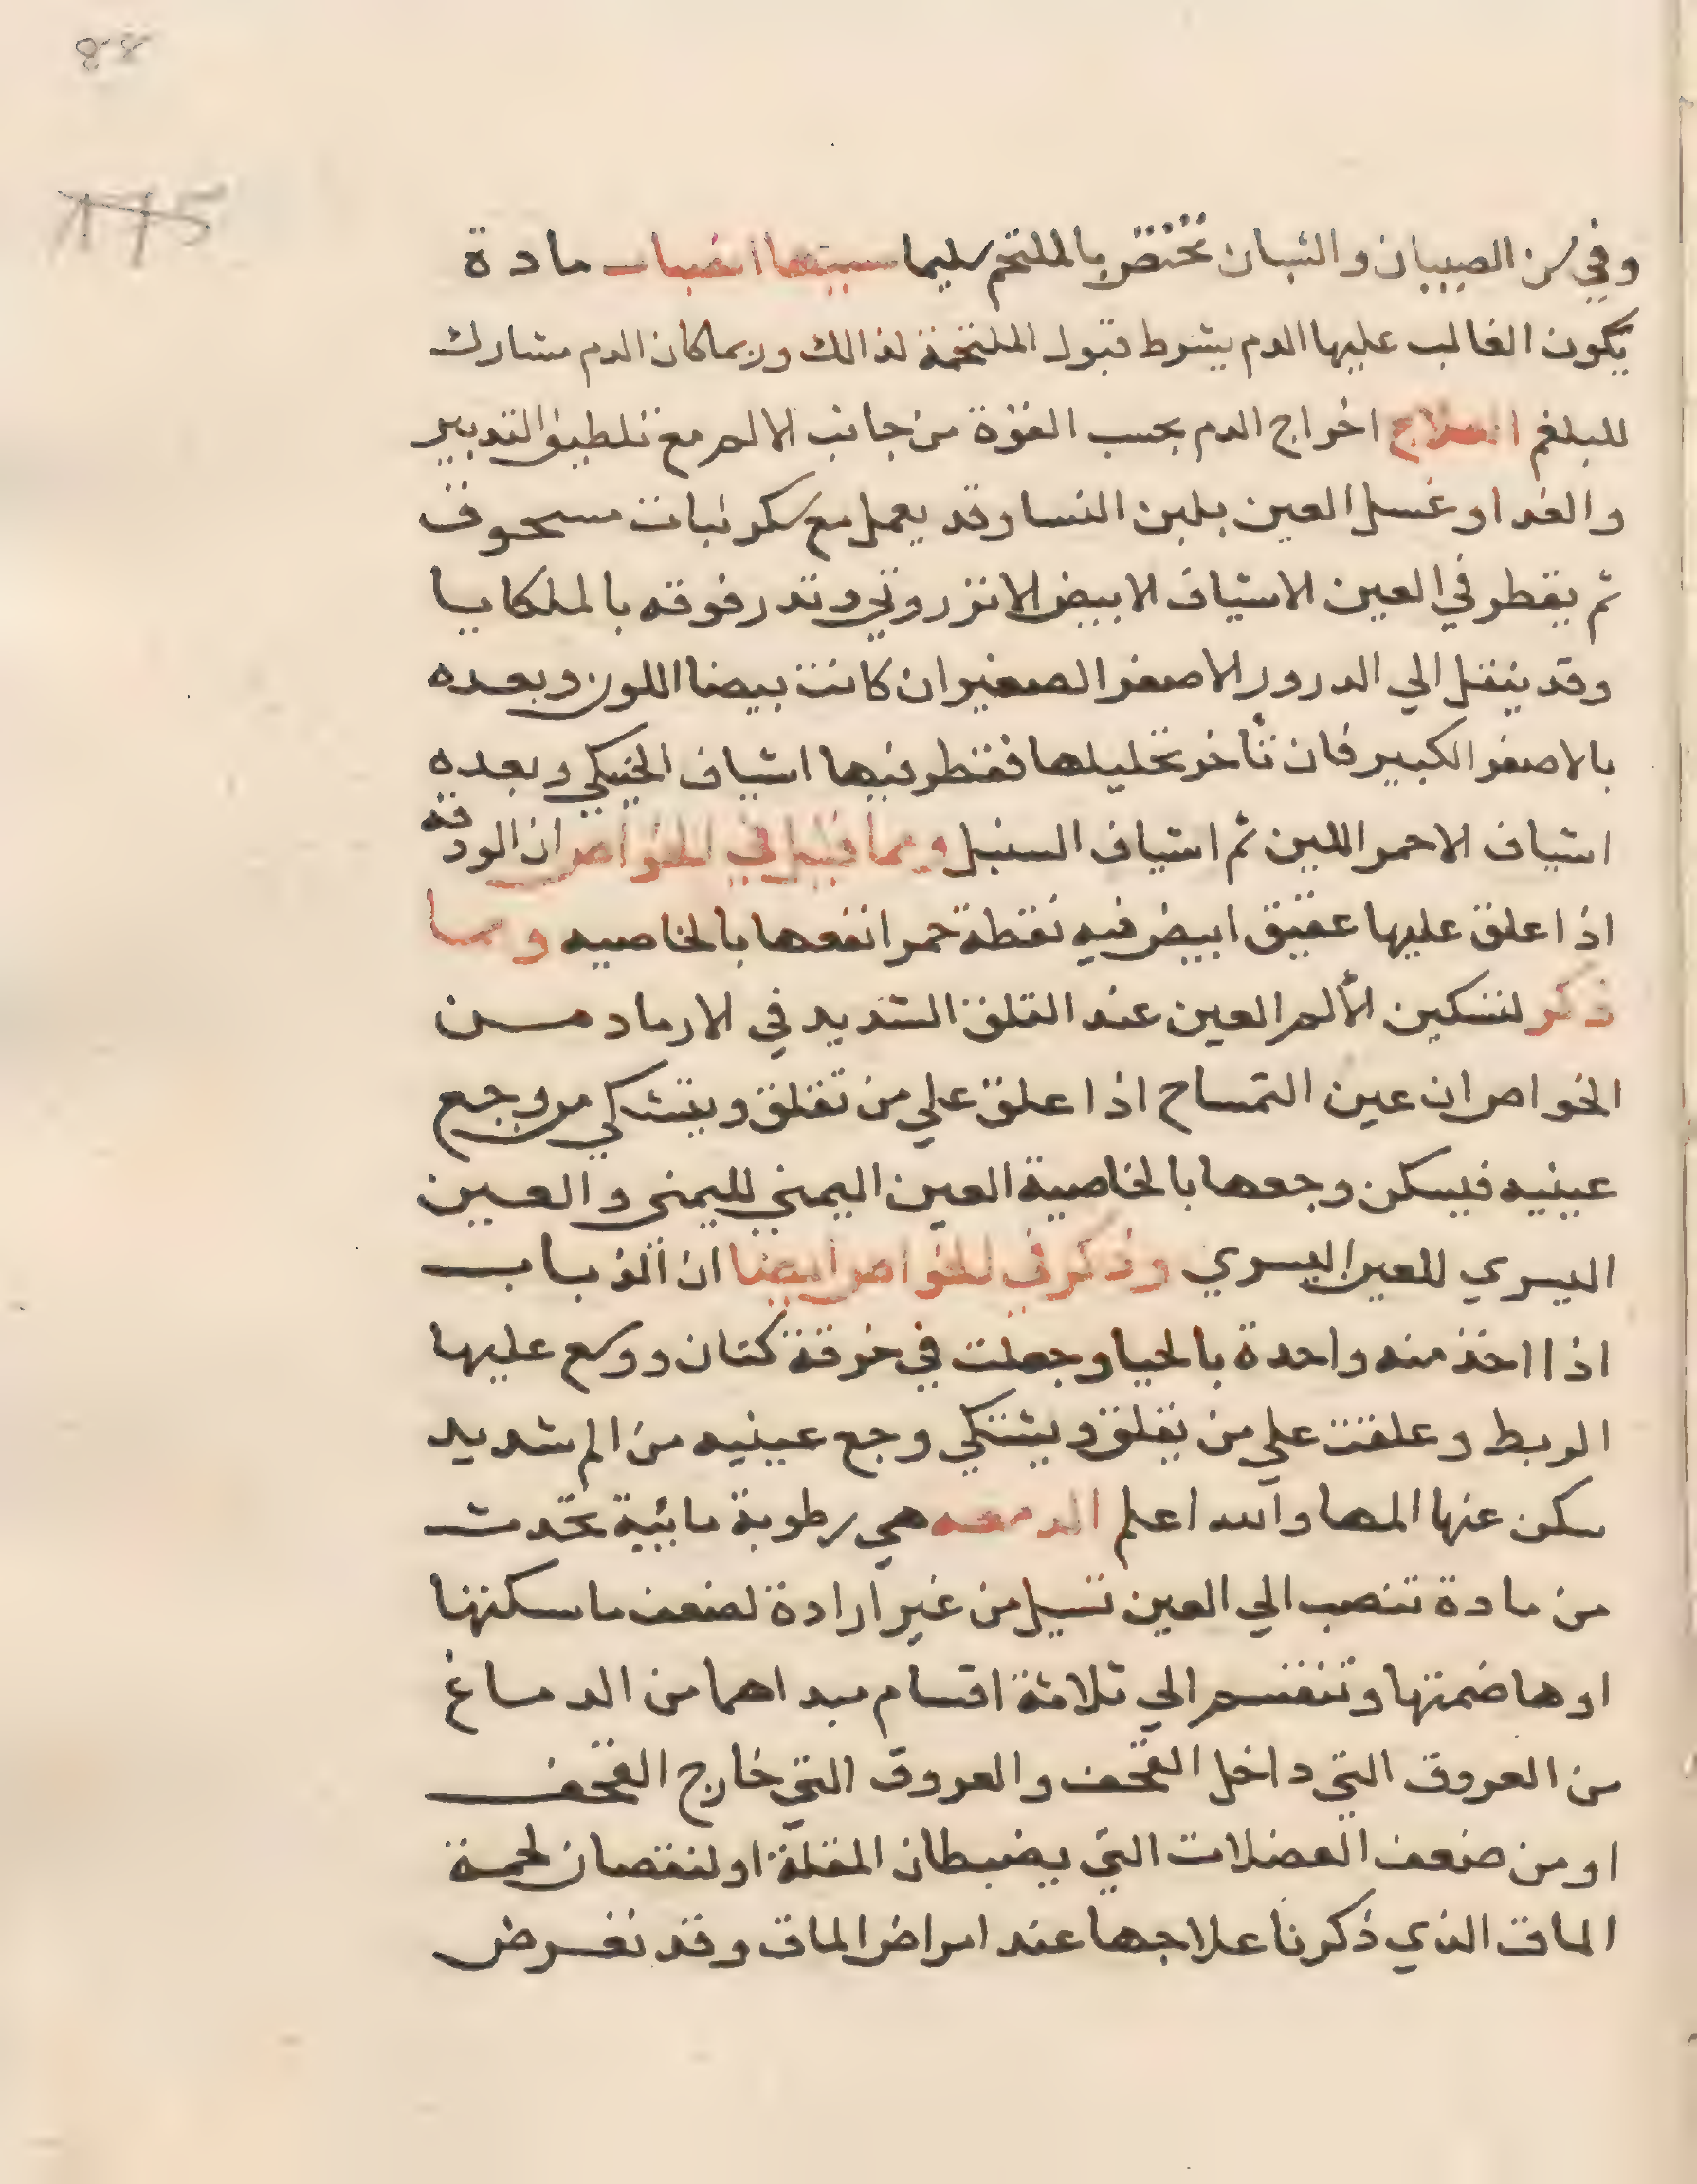 88
175
وفي سن الصبيان والشبان تختص بالملتحم سليما سببها انصباب مادة
يكون الغالب عليها الدم بشرط قبول الملتحمة لذالك وربما كان الدم مشارك
للبلغم العلاج اخراج الدم بحسب القوة من جانب الالم مع تلطيف التدبير
والغدا وغسل العين بلبن النسا وقد يعمل مع سكر نبات مسحوق
ثم يقطر في العين الاشياف الابيض الانزروتي وتدر فوقه بالملكايا
وقد ينقل الي الدرور الاصفر الصغير ان كانت بيضا اللون وبعده
بالاصفر الكبير فان تأخر تحليلها فقطر فيها اشياف الخنكي وبعده
اشياف الاحمر اللين ثم اشياف السنبل ومما قيل في الخواص ان الودقة
اذا علق عليها عقيق ابيض فيه نقطة حمرا نفعها بالخاصيه ومما
ذكر لتسكين الألم العين عند القلق الشديد في الارماد من
الخواص ان عين التمساح اذا علق علي من تقلق ويتشكي من وجع
عينيه فيسكن وجعها بالخاصية العين اليمني لليمني والعين
اليسري للعين اليسري وذكر في الخواص ايضا ان الذباب
اذا اخذ منه واحدة بالحيا وجعلت في خرقة كتان ووسع عليها
الربط وعلقت علي من يقلق ويشتكي وجع عينيه من الم شديد
سكن عنها المها والله اعلم الدمعه هي رطوبة مائية تحدث
من مادة تنصب الي العين تسيل من غير ارادة لضعف ماسكتها
او هاضمتها وتنقسم الي ثلاثة اقسام مبداهما من الدماغ
من العروق التي داخل القحف والعروق التي خارج القحف
او من ضعف العضلات التي يضبطان المقلة او لنقصان لحمة
الماق الذي ذكرنا علاجها عند امراض الماق وقد تعرض